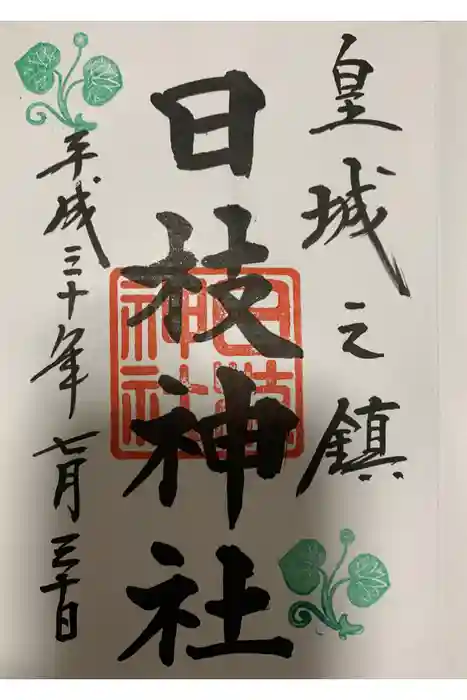 皇城之鎮
日枝神社
日枝神社
平成三十年七月三十日